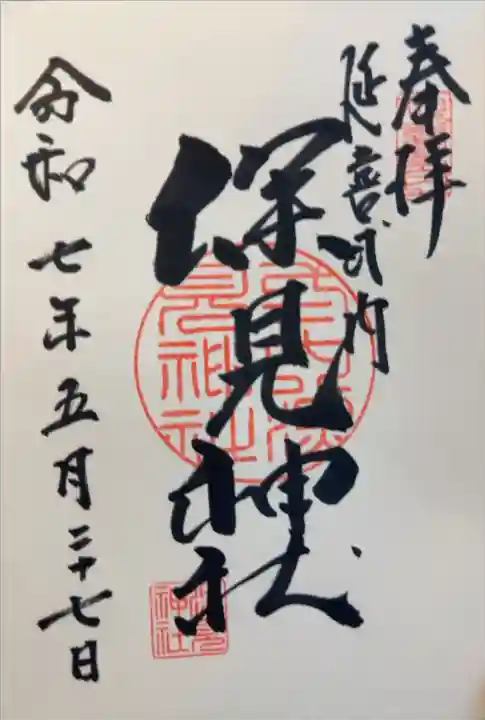 奉拝
延喜式内
深見神社
令和七年五月二十七日
深見
神社